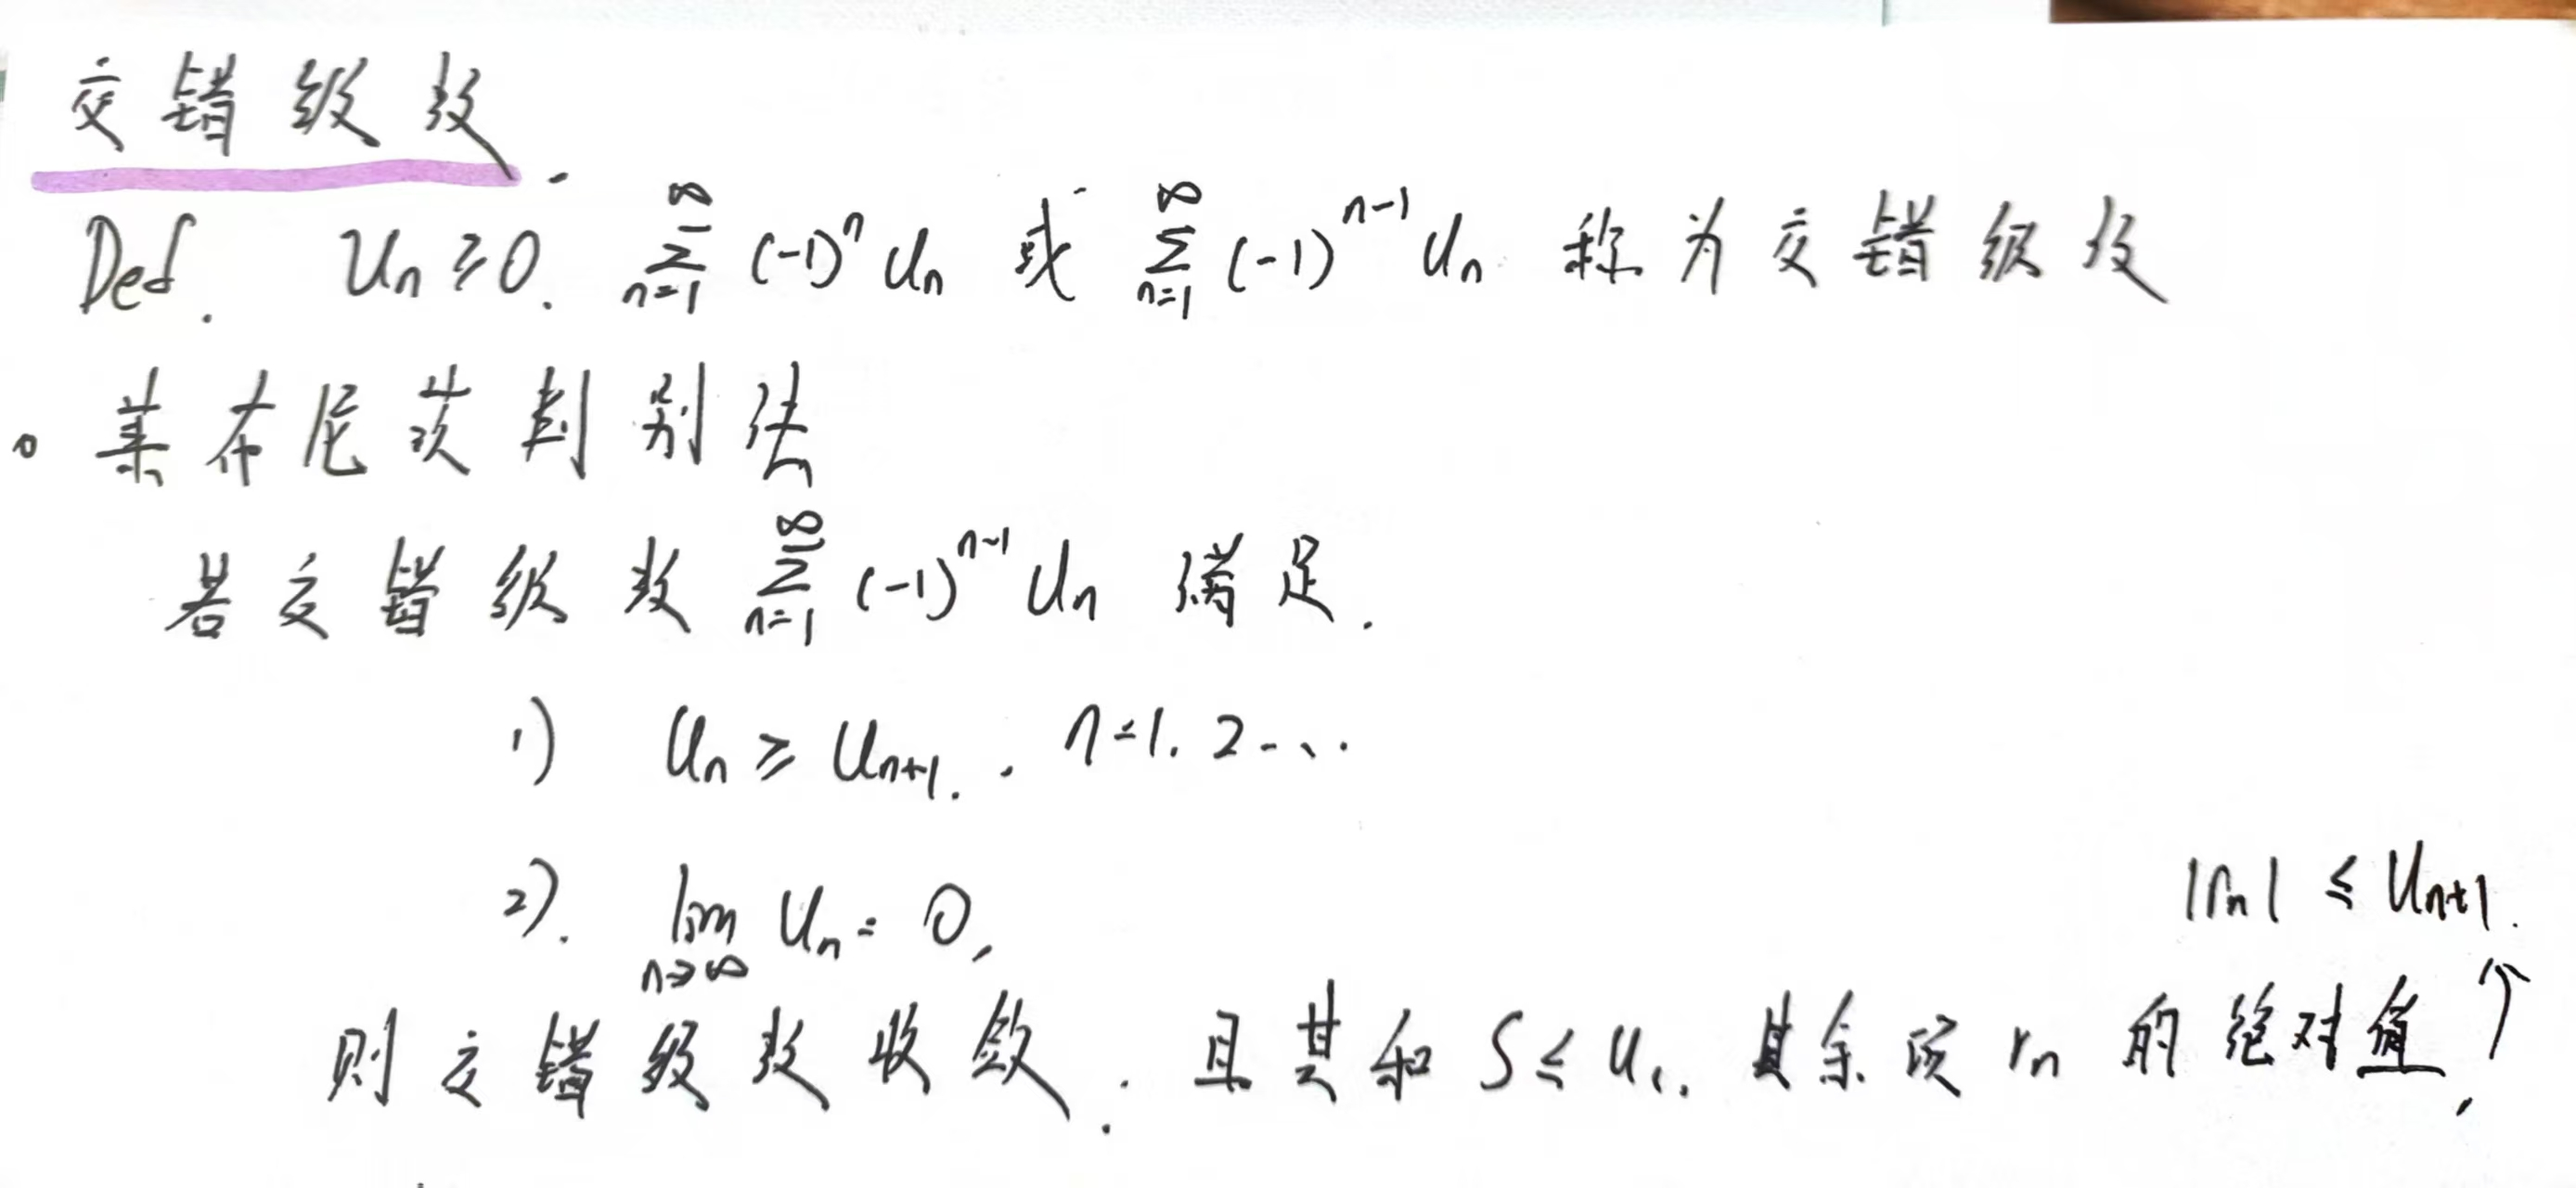 交错级数.
Def. Un≥0. ∞∑n=1 (-1)^n Un 或 ∞∑n=1 (-1)^{n-1} Un 称为交错级数
。莱布尼茨判别法
若交错级数 ∞∑n=1 (-1)^{n-1} Un 满足.
1) Un ≥ Un+1. . n=1. 2...
2). lim n→∞ Un = 0,
|rn| ≤ Un+1.
则交错级数收敛. 且其和 S≤u1. 其余项 rn 的绝对值 ↑,